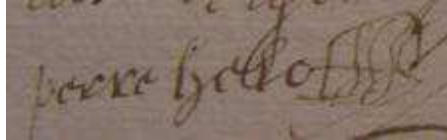 perre hello